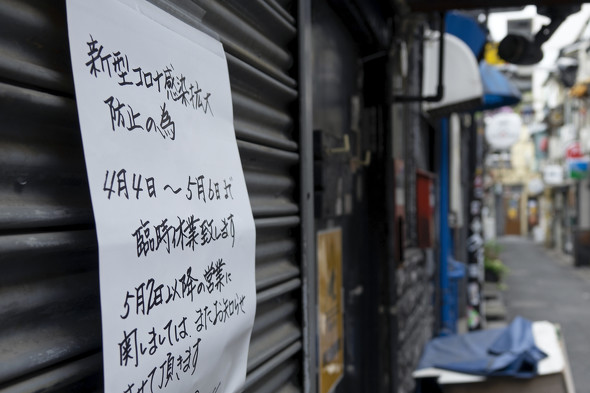 新型コロナ感染拡大
防止の為
4月4日 〜 5月6日まで
臨時休業致します
5月2日以降の営業に
関しましては、またお知らせ
させて頂きます